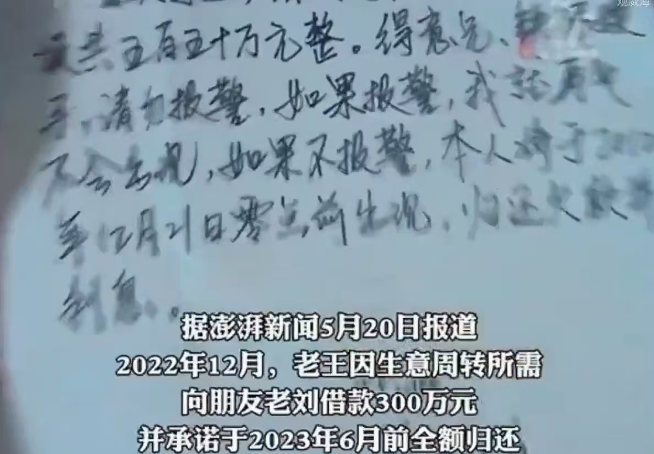 共五百五十万元整。得意兄、
请勿报警,如果报警,我就
不会出现,如果不报警,本人将于
年12月21日零点前出现,归还欠款
利息。
据澎湃新闻5月20日报道
2022年12月,老王因生意周转所需
向朋友老刘借款300万元
并承诺于2023年6月前全额归还